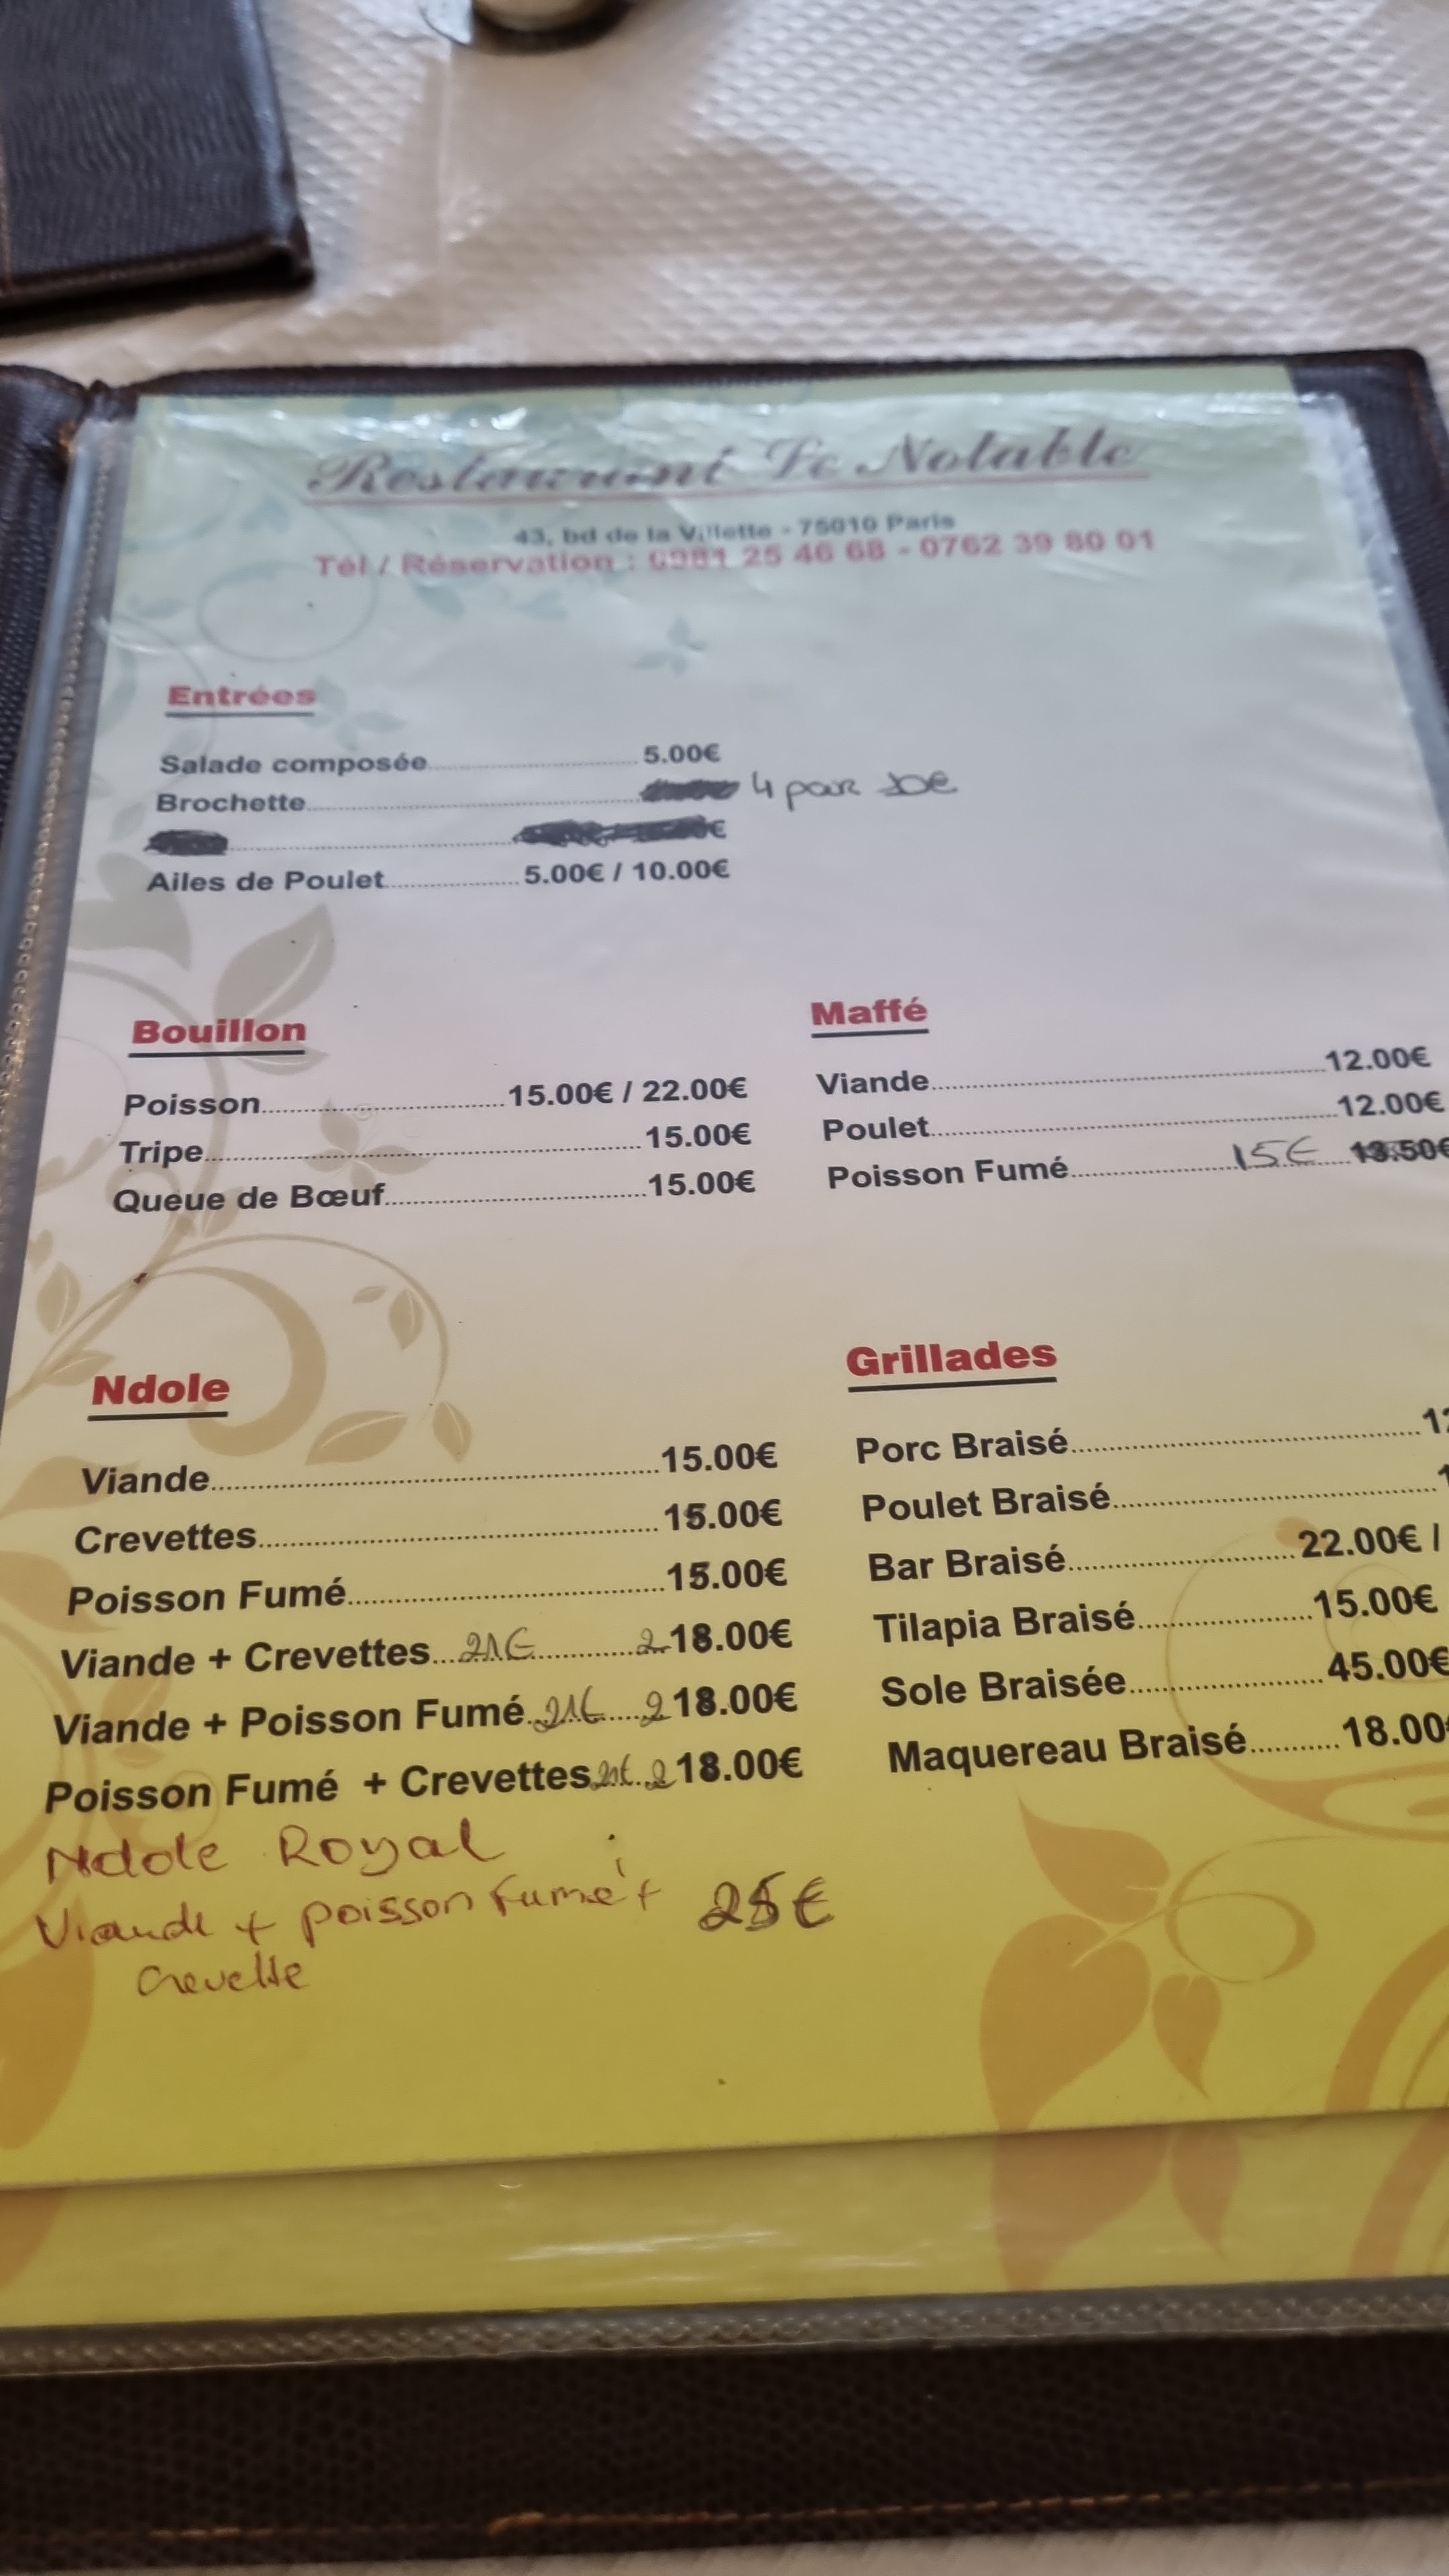 Restaurant Le Notable
43, bd de la Villette - 75010 Paris
Tél / Réservation : 0981 25 46 68 - 0762 39 80 01
Entrées
Salade composée 5.00€
Brochette 4 par
€
Ailes de Poulet 5.00€ / 10.00€
Bouillon
Poisson 15.00€ / 22.00€
Tripe 15.00€
Queue de Bœuf 15.00€
Maffé
Viande 12.00€
Poulet 12.00€
Poisson Fumé 15€ 13.50€
Ndole
Viande 15.00€
Crevettes 15.00€
Poisson Fumé 15.00€
Viande + Crevettes 21€ 2 18.00€
Viande + Poisson Fumé 21€ 2 18.00€
Poisson Fumé + Crevettes 21€ 2 18.00€
Ndole Royal
Viande + poisson fumé + 25€
Crevette
Grillades
Porc Braisé
Poulet Braisé
Bar Braisé 22.00€ /
Tilapia Braisé 15.00€
Sole Braisée 45.00€
Maquereau Braisé 18.00